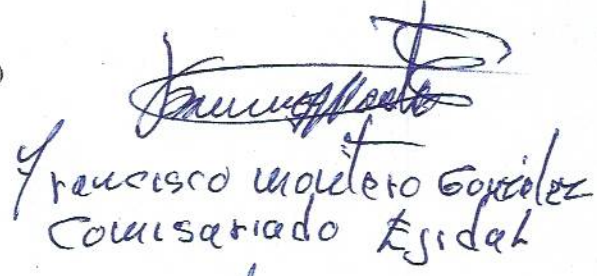 Francisco Montero González
Comisariado Egidal